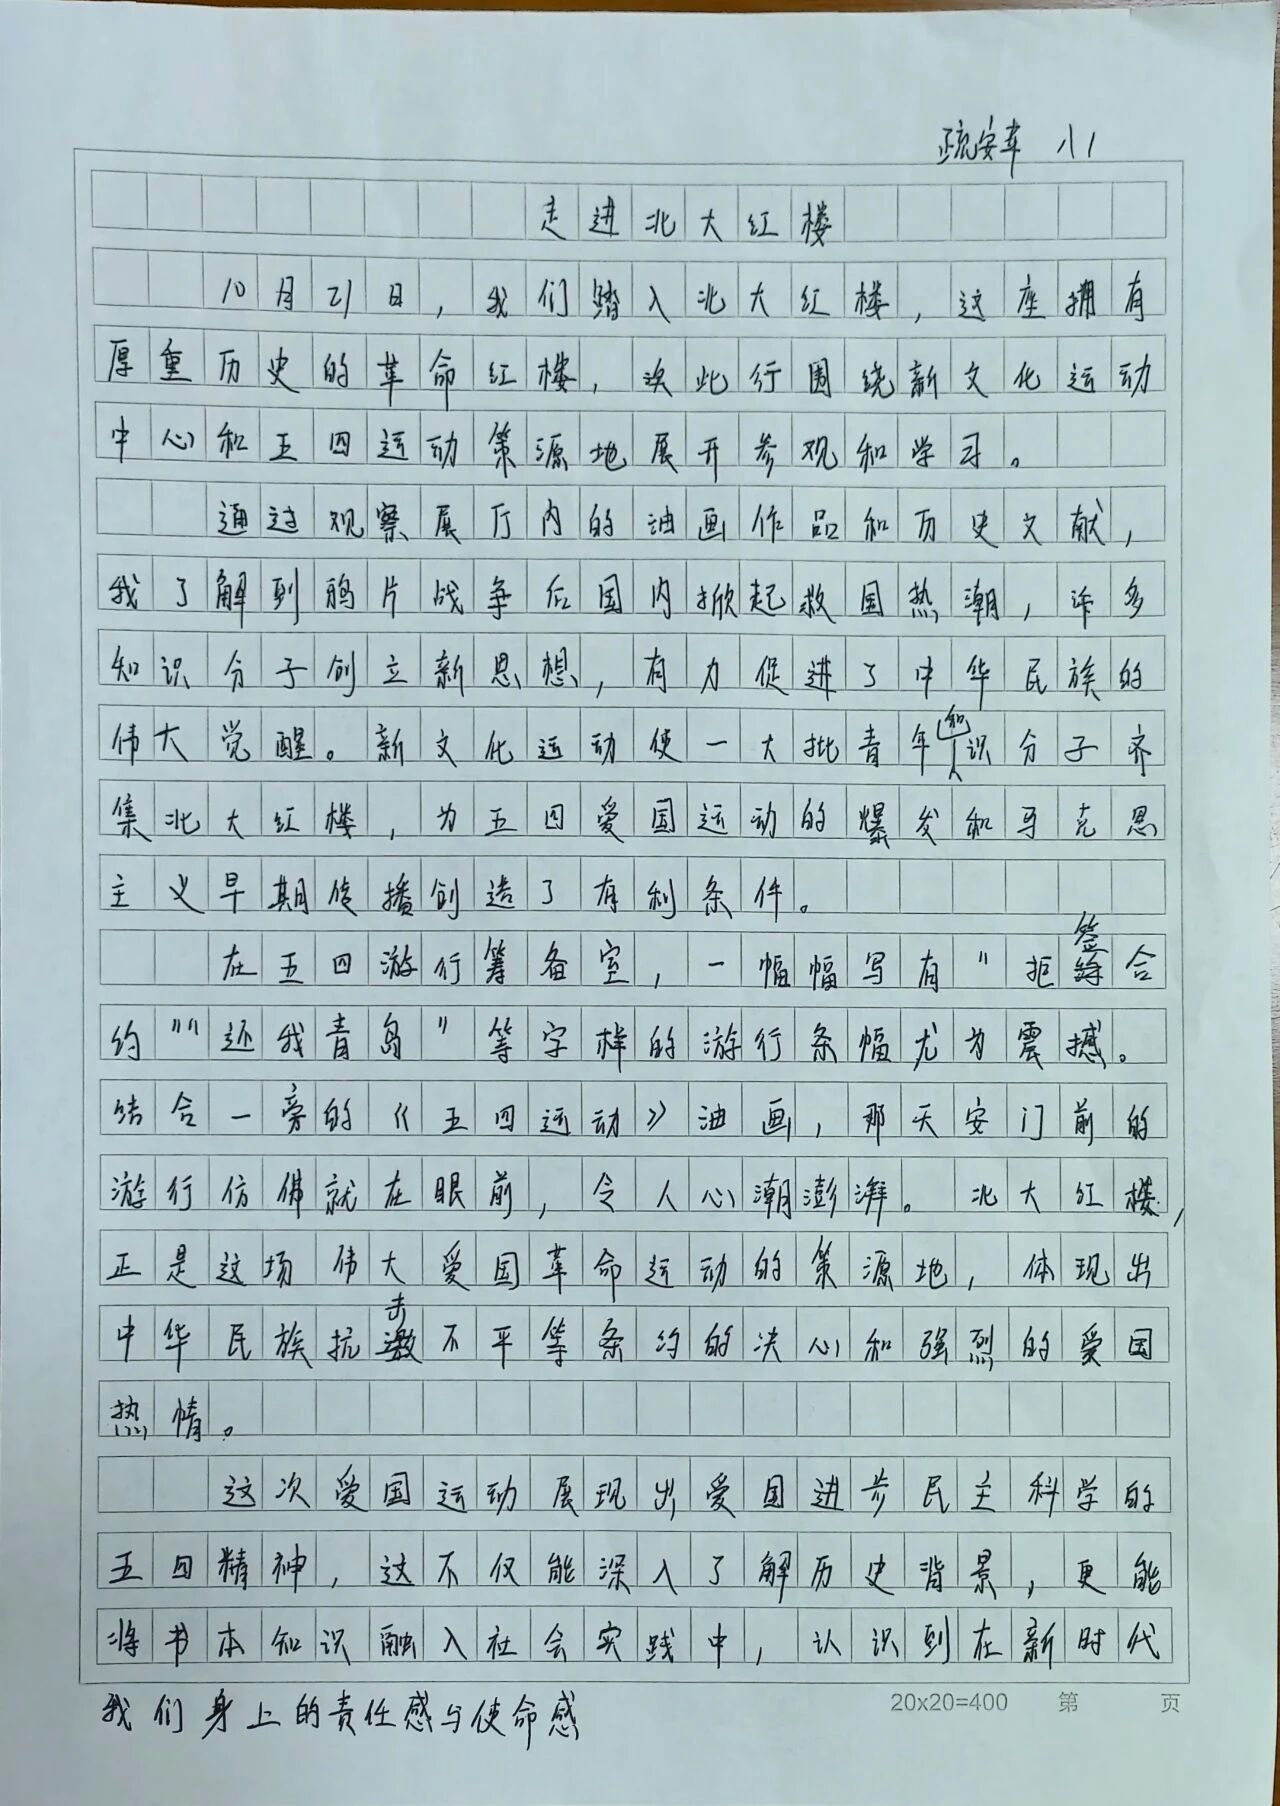 疏安苇 八1
走进北大红楼
10月21日，我们踏入北大红楼，这座拥有
厚重历史的革命红楼，次此行围绕新文化运动
中心和五四运动策源地展开参观和学习。
通过观察展厅内的油画作品和历史文献，
我了解到鸦片战争后国内掀起救国热潮，许多
知识分子创立新思想，有力促进了中华民族的
伟大觉醒。新文化运动使一大批青年知识分子齐
集北大红楼，为五四爱国运动的爆发和马克思
主义早期传播创造了有利条件。
在五四游行筹备室，一幅幅写有"拒签合
约""还我青岛"等字样的游行条幅尤为震撼。
结合一旁的《五四运动》油画，那天安门前的
游行仿佛就在眼前，令人心潮澎湃。北大红楼，
正是这场伟大爱国革命运动的策源地，体现出
中华民族抗击不平等条约的决心和强烈的爱国
热情。
这次爱国运动展现出爱国进步民主科学的
五四精神，这不仅能深入了解历史背景，更能
将书本知识融入社会实践中，认识到在新时代
我们身上的责任感与使命感
20x20=400 第 页